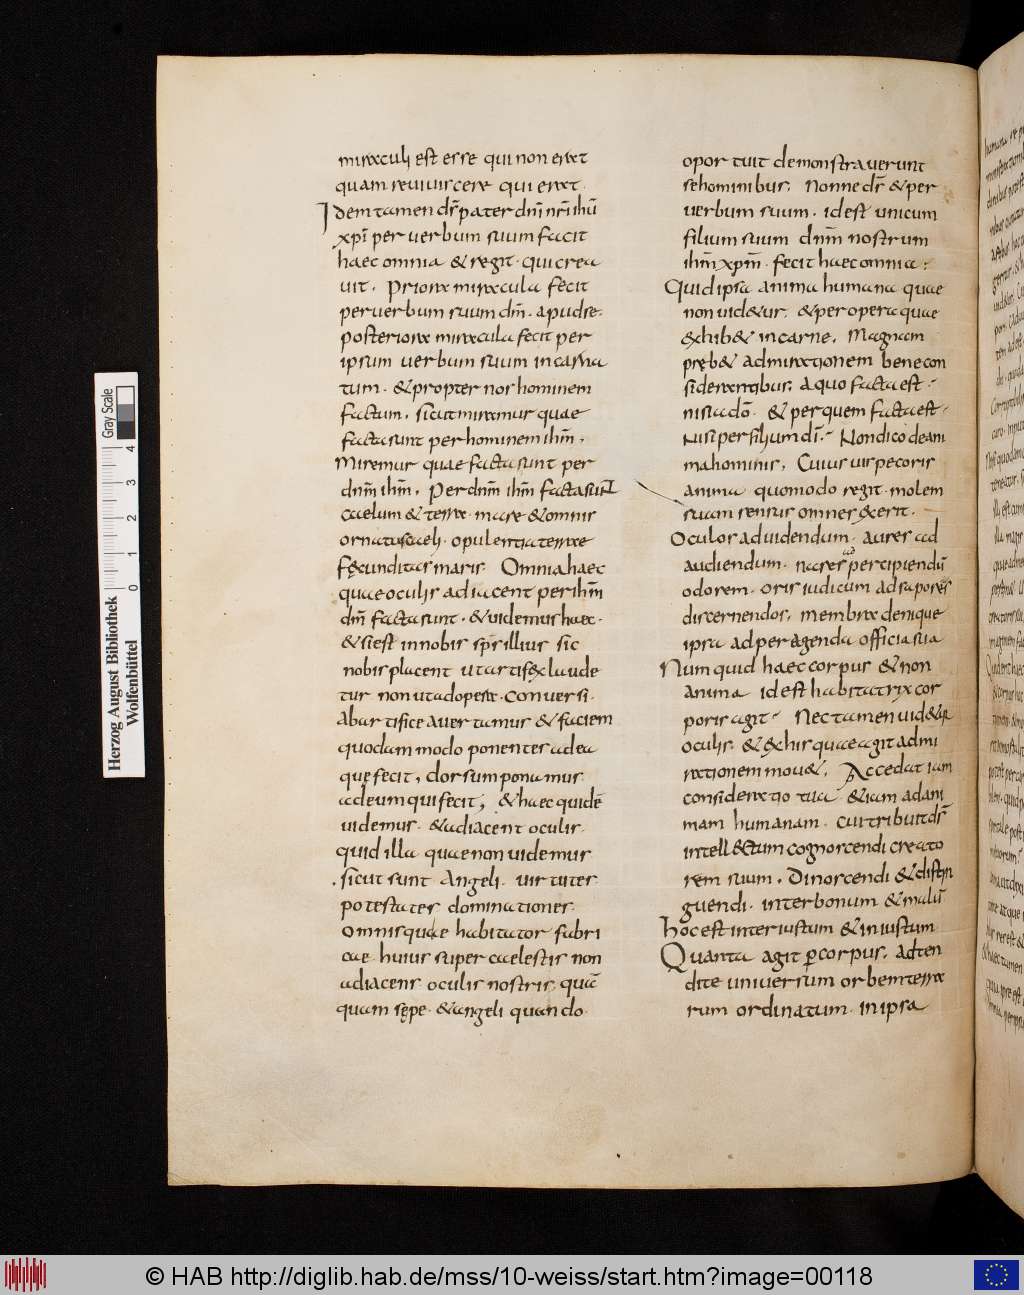 miraculi est esse qui non erat
quam reuiuiscere qui erat.
Idem tamen ds̄ pater dn̄i nr̄i ih̄u
xp̄i per uerbum suum facit
haec omnia & regit. qui crea
uit. Priora miracula fecit
per uerbum suum dm̄. apud se.
posteriora miracula fecit per
ipsum uerbum suum incarna
tum. & propter nos hominem
factum. sicut miramur quae
facta sunt per hominem ih̄m.
Miremur quae facta sunt per
dn̄m ih̄m. Per dn̄m ih̄m facta sunt
caelum & terra. mare & omnis
ornatus caeli. opulentia terrae
fęcunditas maris Omnia haec
quae oculis adiacent per ih̄m
dm̄ facta sunt. & uidemus haec.
& si est in nobis sp̄s illius sic
nobis placent ut artifex laude
tur non ut ad opera conuersi.
ab artifice auertamur & faciem
quodammodo ponentes ad ea
quę fecit, dorsum ponamus
ad eum qui fecit; & haec quidē
uidemus. & adiacent oculis.
quid illa quae non uidemus
sicut sunt Angeli. uirtutes
potestates dominationes.
Omnisquae habitator fabri
cae huius supercaelestis non
adiacens oculis nostris. quā
quam sępe. & angeli quando.
oportuit demonstrauerunt
se hominibus. Nonne ds̄ & per
uerbum suum. id est unicum
filium suum dn̄m nostrum
ih̄m xp̄m. fecit haec omnia;
Quid ipsa anima humana quae
non uid&ur. & per opera quae
exhib& in carne. Magnam
pręb& admirationem bene con
siderantibus. a quo facta est.
nisi a dō. & per quem facta est.
Nisi per filium dī. Non dico de ani
ma hominis. Cuius uis pecoris
anima quomodo regit molem
suam sensus omnes exerit.
Oculos ad uidendum. aures ad
audiendum. nares ad percipiendū
odorem. oris iudicum ad sapores
discernendos. membra denique
ipsa ad peragenda officia sua
Numquid haec corpus & non
anima id est habitatrix cor
poris agit. Nec tamen uid&ur
oculis. & ex his quae agit admi
rationem mou&. Accedat iam
consideratio tua &iam ad ani
mam humanam. cui tribuit ds̄
intellectum cognoscendi creato
rem suum. Dinoscendi & distin
guendi. inter bonum & malū
hoc est inter iustum & iniustum
Quanta agit per corpus. adten
dite uniuersum orbem terra
rum ordinatum. in ipsa
Gray Scale
0 1 2 3 4
Herzog August Bibliothek
Wolfenbüttel
© HAB http://diglib.hab.de/mss/10-weiss/start.htm?image=00118